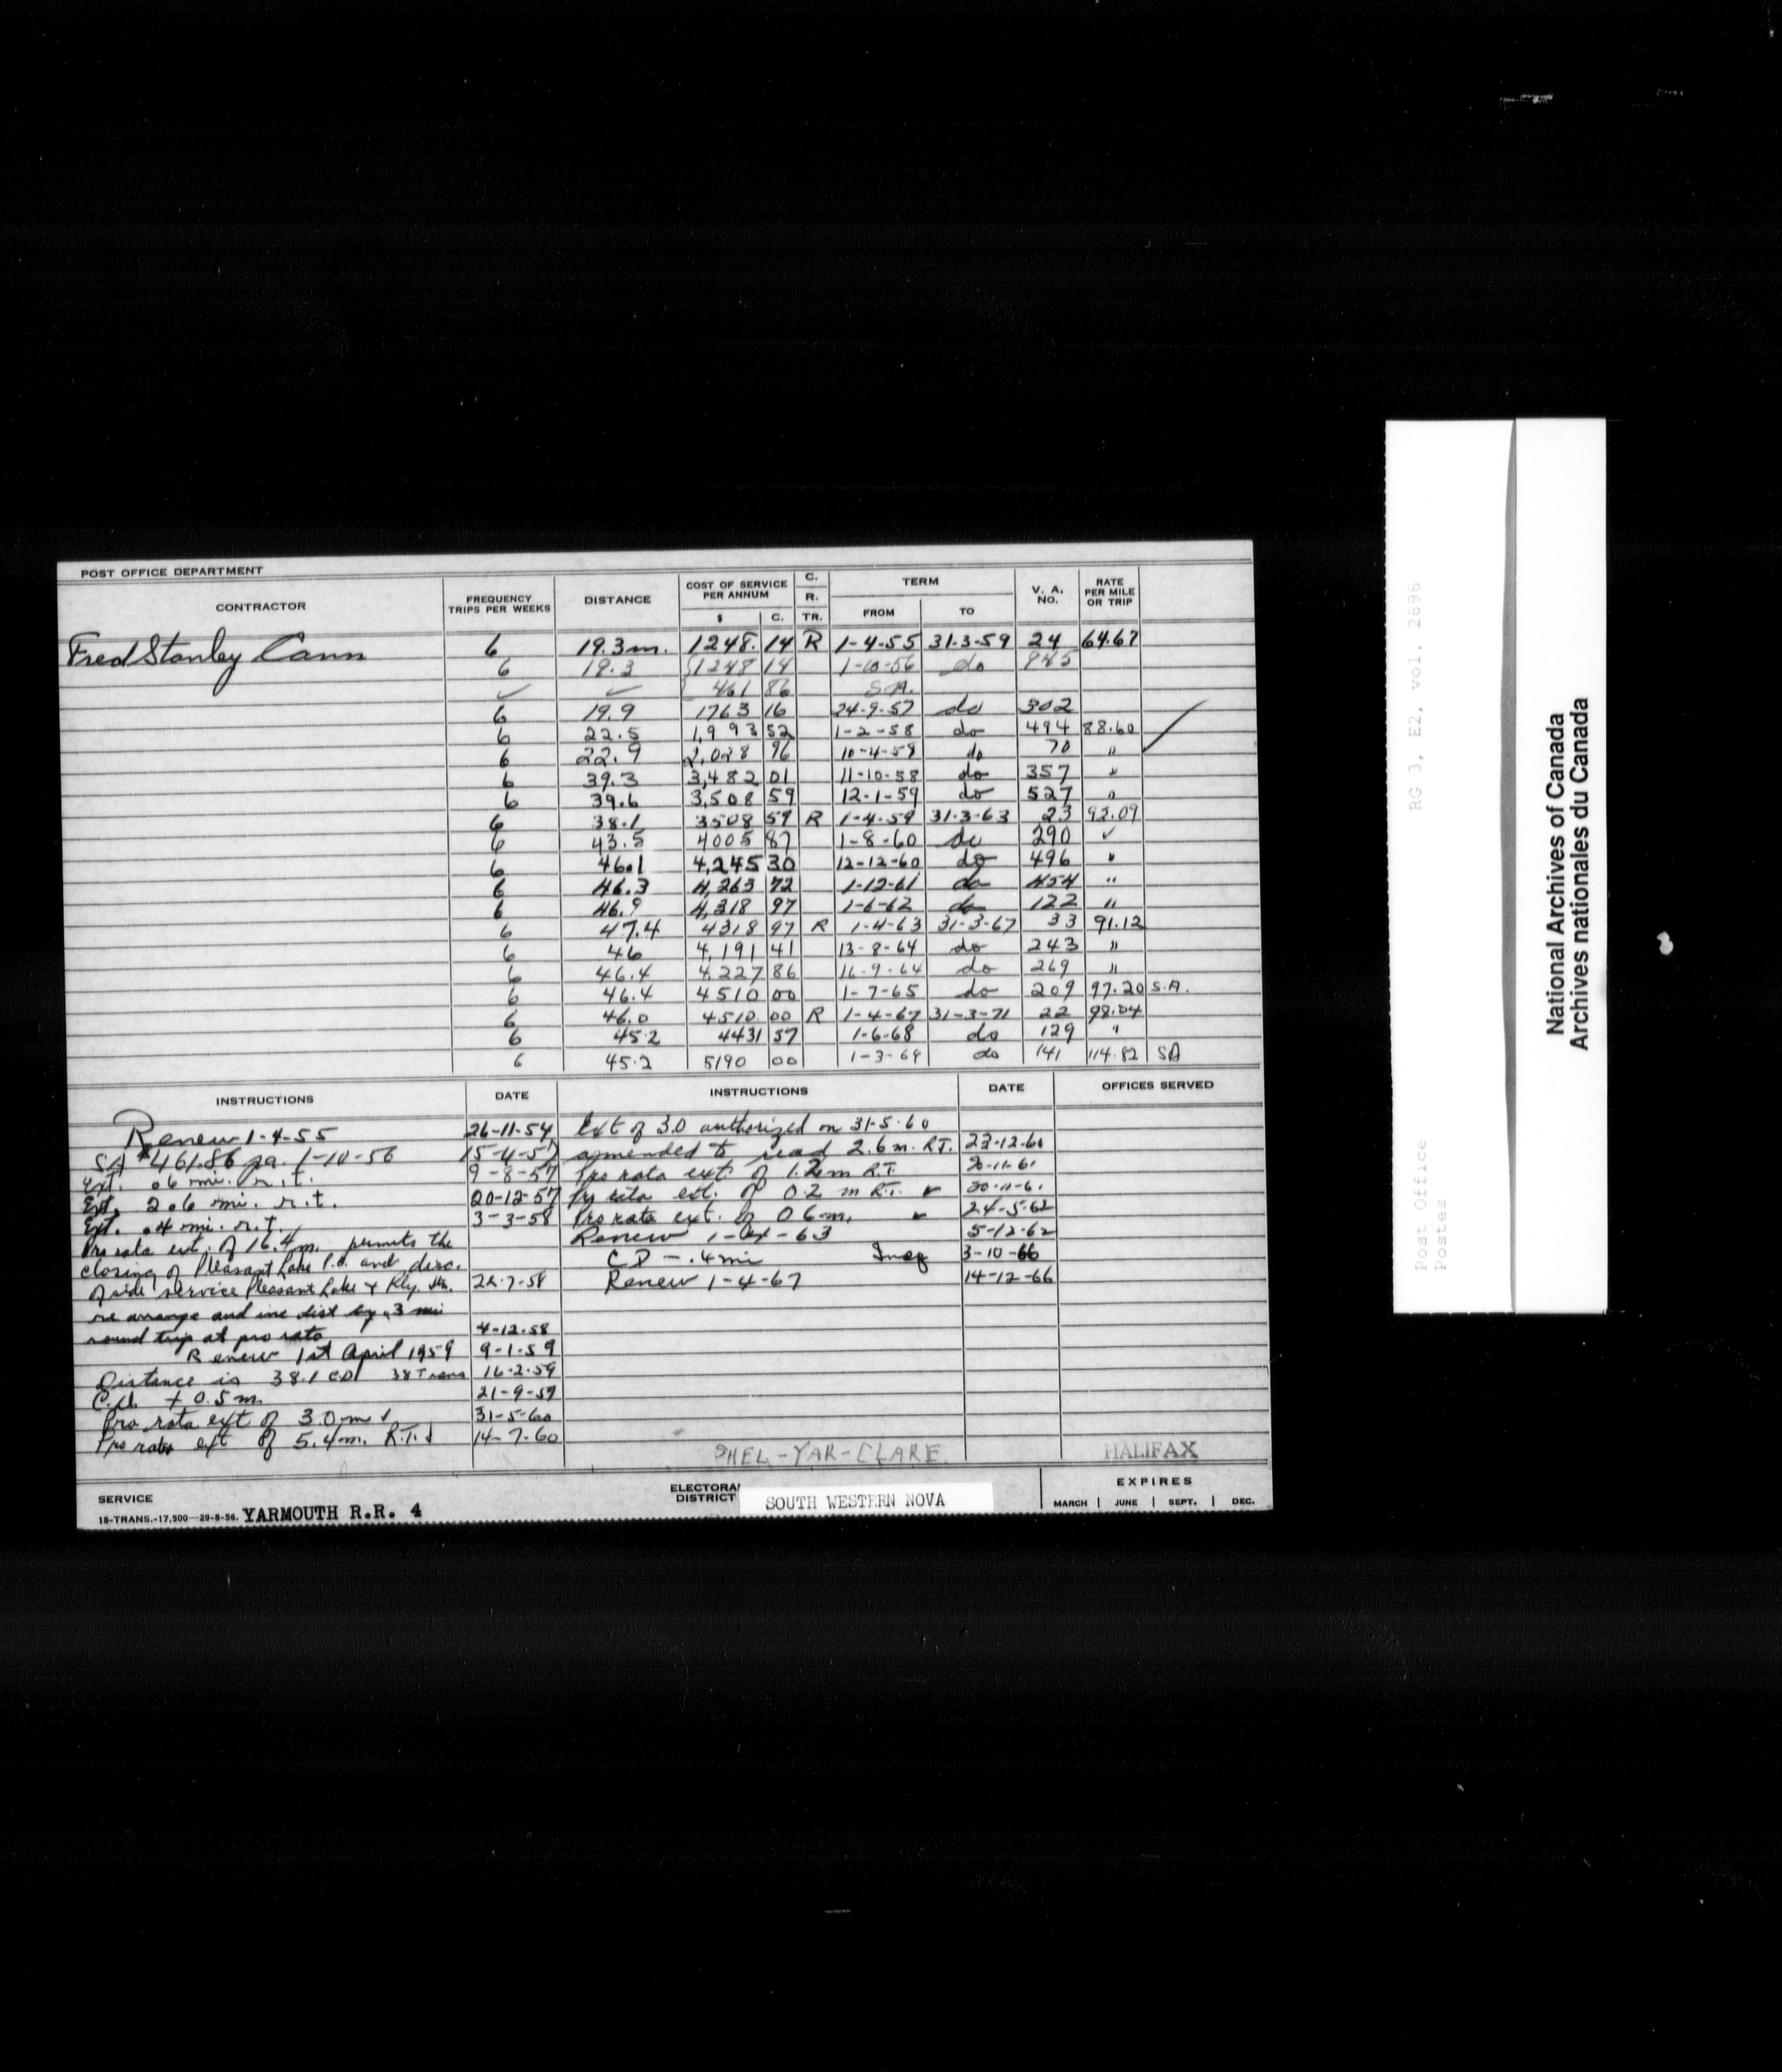 POST OFFICE DEPARTMENT
CONTRACTOR FREQUENCY TRIPS PER WEEKS DISTANCE COST OF SERVICE PER ANNUM $ C. C. R. TR. TERM FROM TO V. A. NO. RATE PER MILE OR TRIP
Fred Stanley Cann 6 19.3 m. 1248. 14 R 1-4-55 31-3-59 24 64.67
6 19.3 1248 14 1-10-56 do
✓ ✓ 461 86 S.A.
6 19.9 1763 16 24-9-57 do 302
6 22.5 1,993 52 1-2-58 do 494 88.60
6 22.9 2,028 96 10-4-58 do 70 "
6 39.3 3,482 01 11-10-58 do 357 "
6 39.6 3,508 59 12-1-59 do 527 "
6 38.1 3508 59 R 1-4-59 31-3-63 23 92.09
6 43.5 4005 87 1-8-60 do 290 ✓
6 46.1 4,245 30 12-12-60 do 496 "
6 46.3 4,263 72 1-12-61 do 454 "
6 46.9 4,318 97 1-6-62 do 122 "
6 47.4 4318 97 R 1-4-63 31-3-67 33 91.12
6 46 4,191 41 13-8-64 do 243 "
6 46.4 4,227 86 16-9-64 do 269 "
6 46.4 4510 00 1-7-65 do 209 97.20 S.A.
6 46.0 4510 00 R 1-4-67 31-3-71 22 98.04
6 45.2 4431 57 1-6-68 do 129 "
6 45.2 5190 00 1-3-69 do 141 114.82 SA
INSTRUCTIONS DATE INSTRUCTIONS DATE OFFICES SERVED
Renew 1-4-55 26-11-54
SA $461.86 pa. 1-10-56 15-4-57
Ext. .06 mi. r.t. 9-8-57
Ext. 2.6 mi. r.t. 20-12-57
Ext. .4 mi. r.t. 3-3-58
Pro rata ext. of 16.4 m. permits the
closing of Pleasant Lake P.O. and disc.
of side service Pleasant Lake & Rly. Stn. 22-7-58
re arrange and inc dist by .3 mi
round trip at pro rata 4-12-58
Renew 1st April 1959 9-1-59
Distance is 38.1 CD 38 Trans 16-2-59
C.D. + 0.5 m. 21-9-59
Pro rata ext of 3.0 m 31-5-60
Pro rata ext of 5.4 m. R.T. 14-7-60
Ext of 3.0 authorized on 31-5-60
amended to read 2.6 m. R.T. 22-12-60
Pro rata ext. of 1.2 m R.T.
Pro rata ext. of 0.2 m R.T. ✓ 30-11-61
Pro rata ext. of 0.6 m. ✓ 24-5-62
Renew 1-4-63 5-12-62
CD - .4 mi 3-10-66
Renew 1-4-67 14-12-66
SHEL-YAR-CLARE HALIFAX
SERVICE YARMOUTH R.R. 4
18-TRANS.-17,500—29-8-56.
ELECTORAL DISTRICT SOUTH WESTERN NOVA
EXPIRES
MARCH | JUNE | SEPT. | DEC.
RG 3, E2, vol. 2696
Post Office
Postes
National Archives of Canada
Archives nationales du Canada